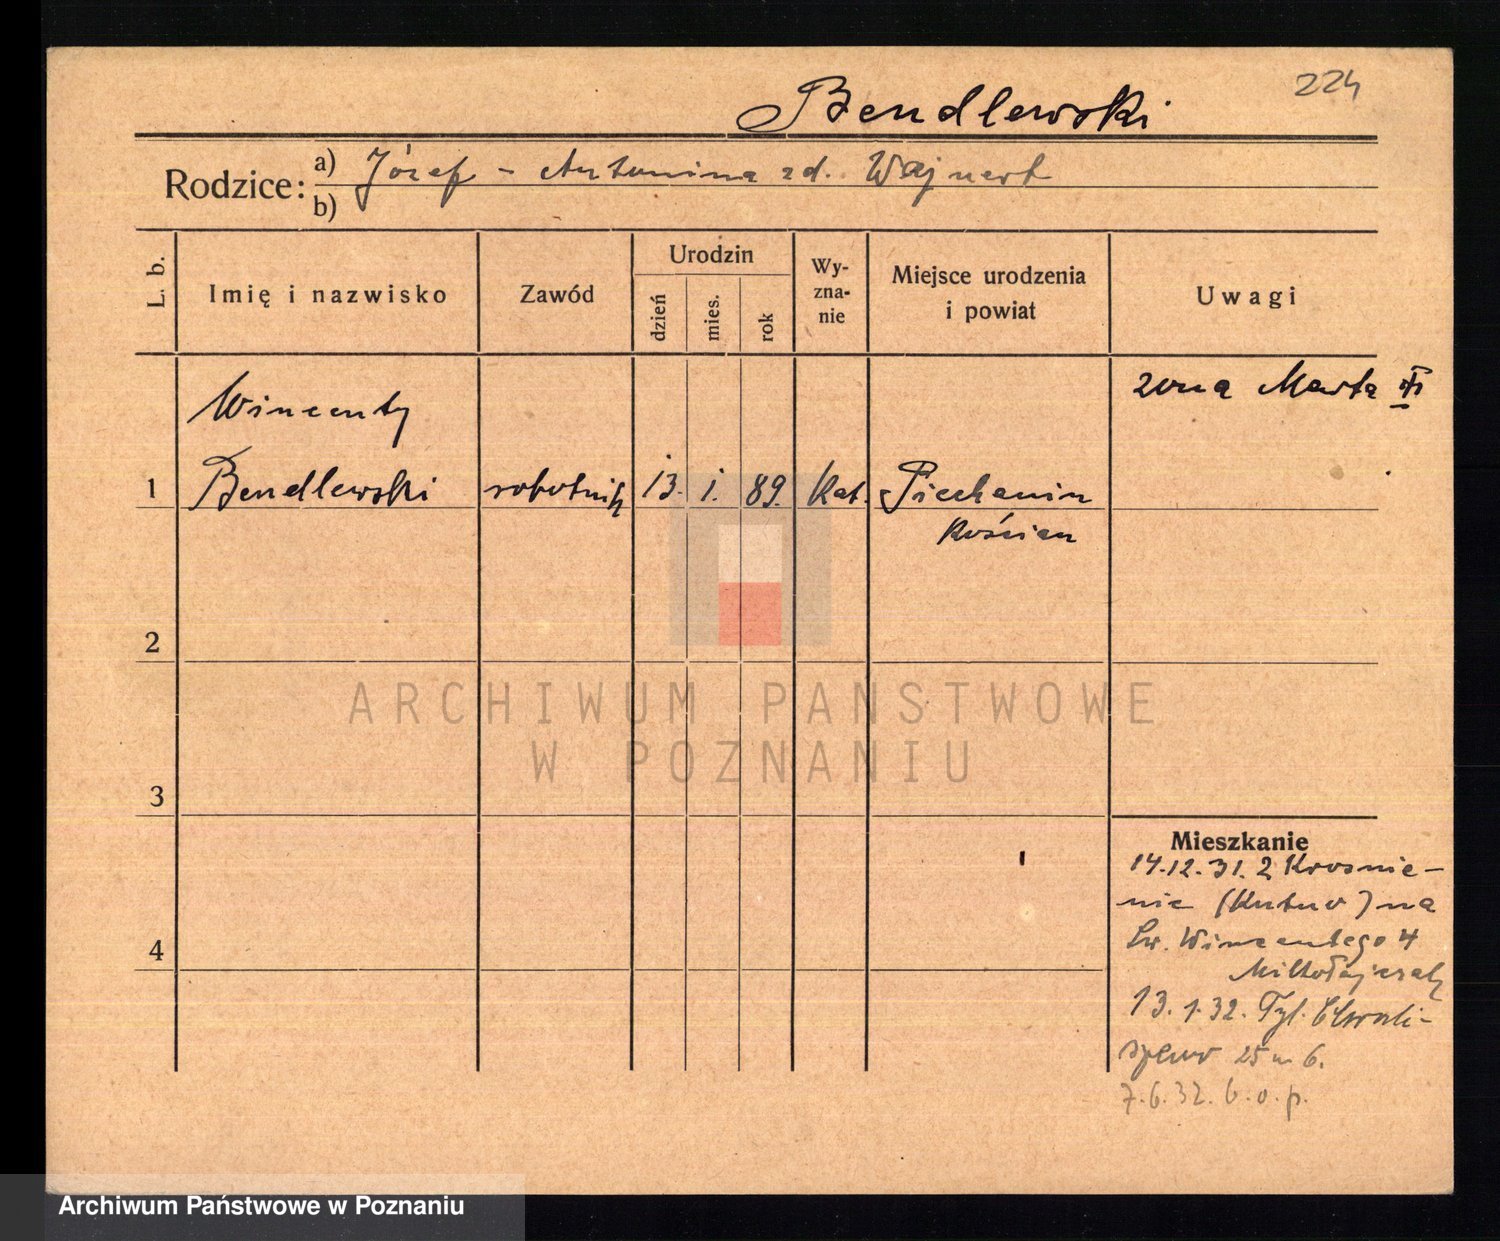 224
Bendlewski
Rodzice: a) Józef - Antonina zd. Wajnert
b)
L. b.
Imię i nazwisko
Zawód
Urodzin
dzień
mies.
rok
Wy-
zna-
nie
Miejsce urodzenia
i powiat
Uwagi
żona Marta
Wincenty
1 Bendlewski robotnik 13. 1. 89. Kat. Piechanin
Kościan
2
3
4
Mieszkanie
14.12.31. z Krośnie-
nic (Kutno) na
Św. Wincentego 4
Mikołajczak
13.1.32. Tyl. Chwali-
szewo 25 m 6.
7.6.32. b.o.p.
ARCHIWUM PAŃSTWOWE
W POZNANIU
Archiwum Państwowe w Poznaniu